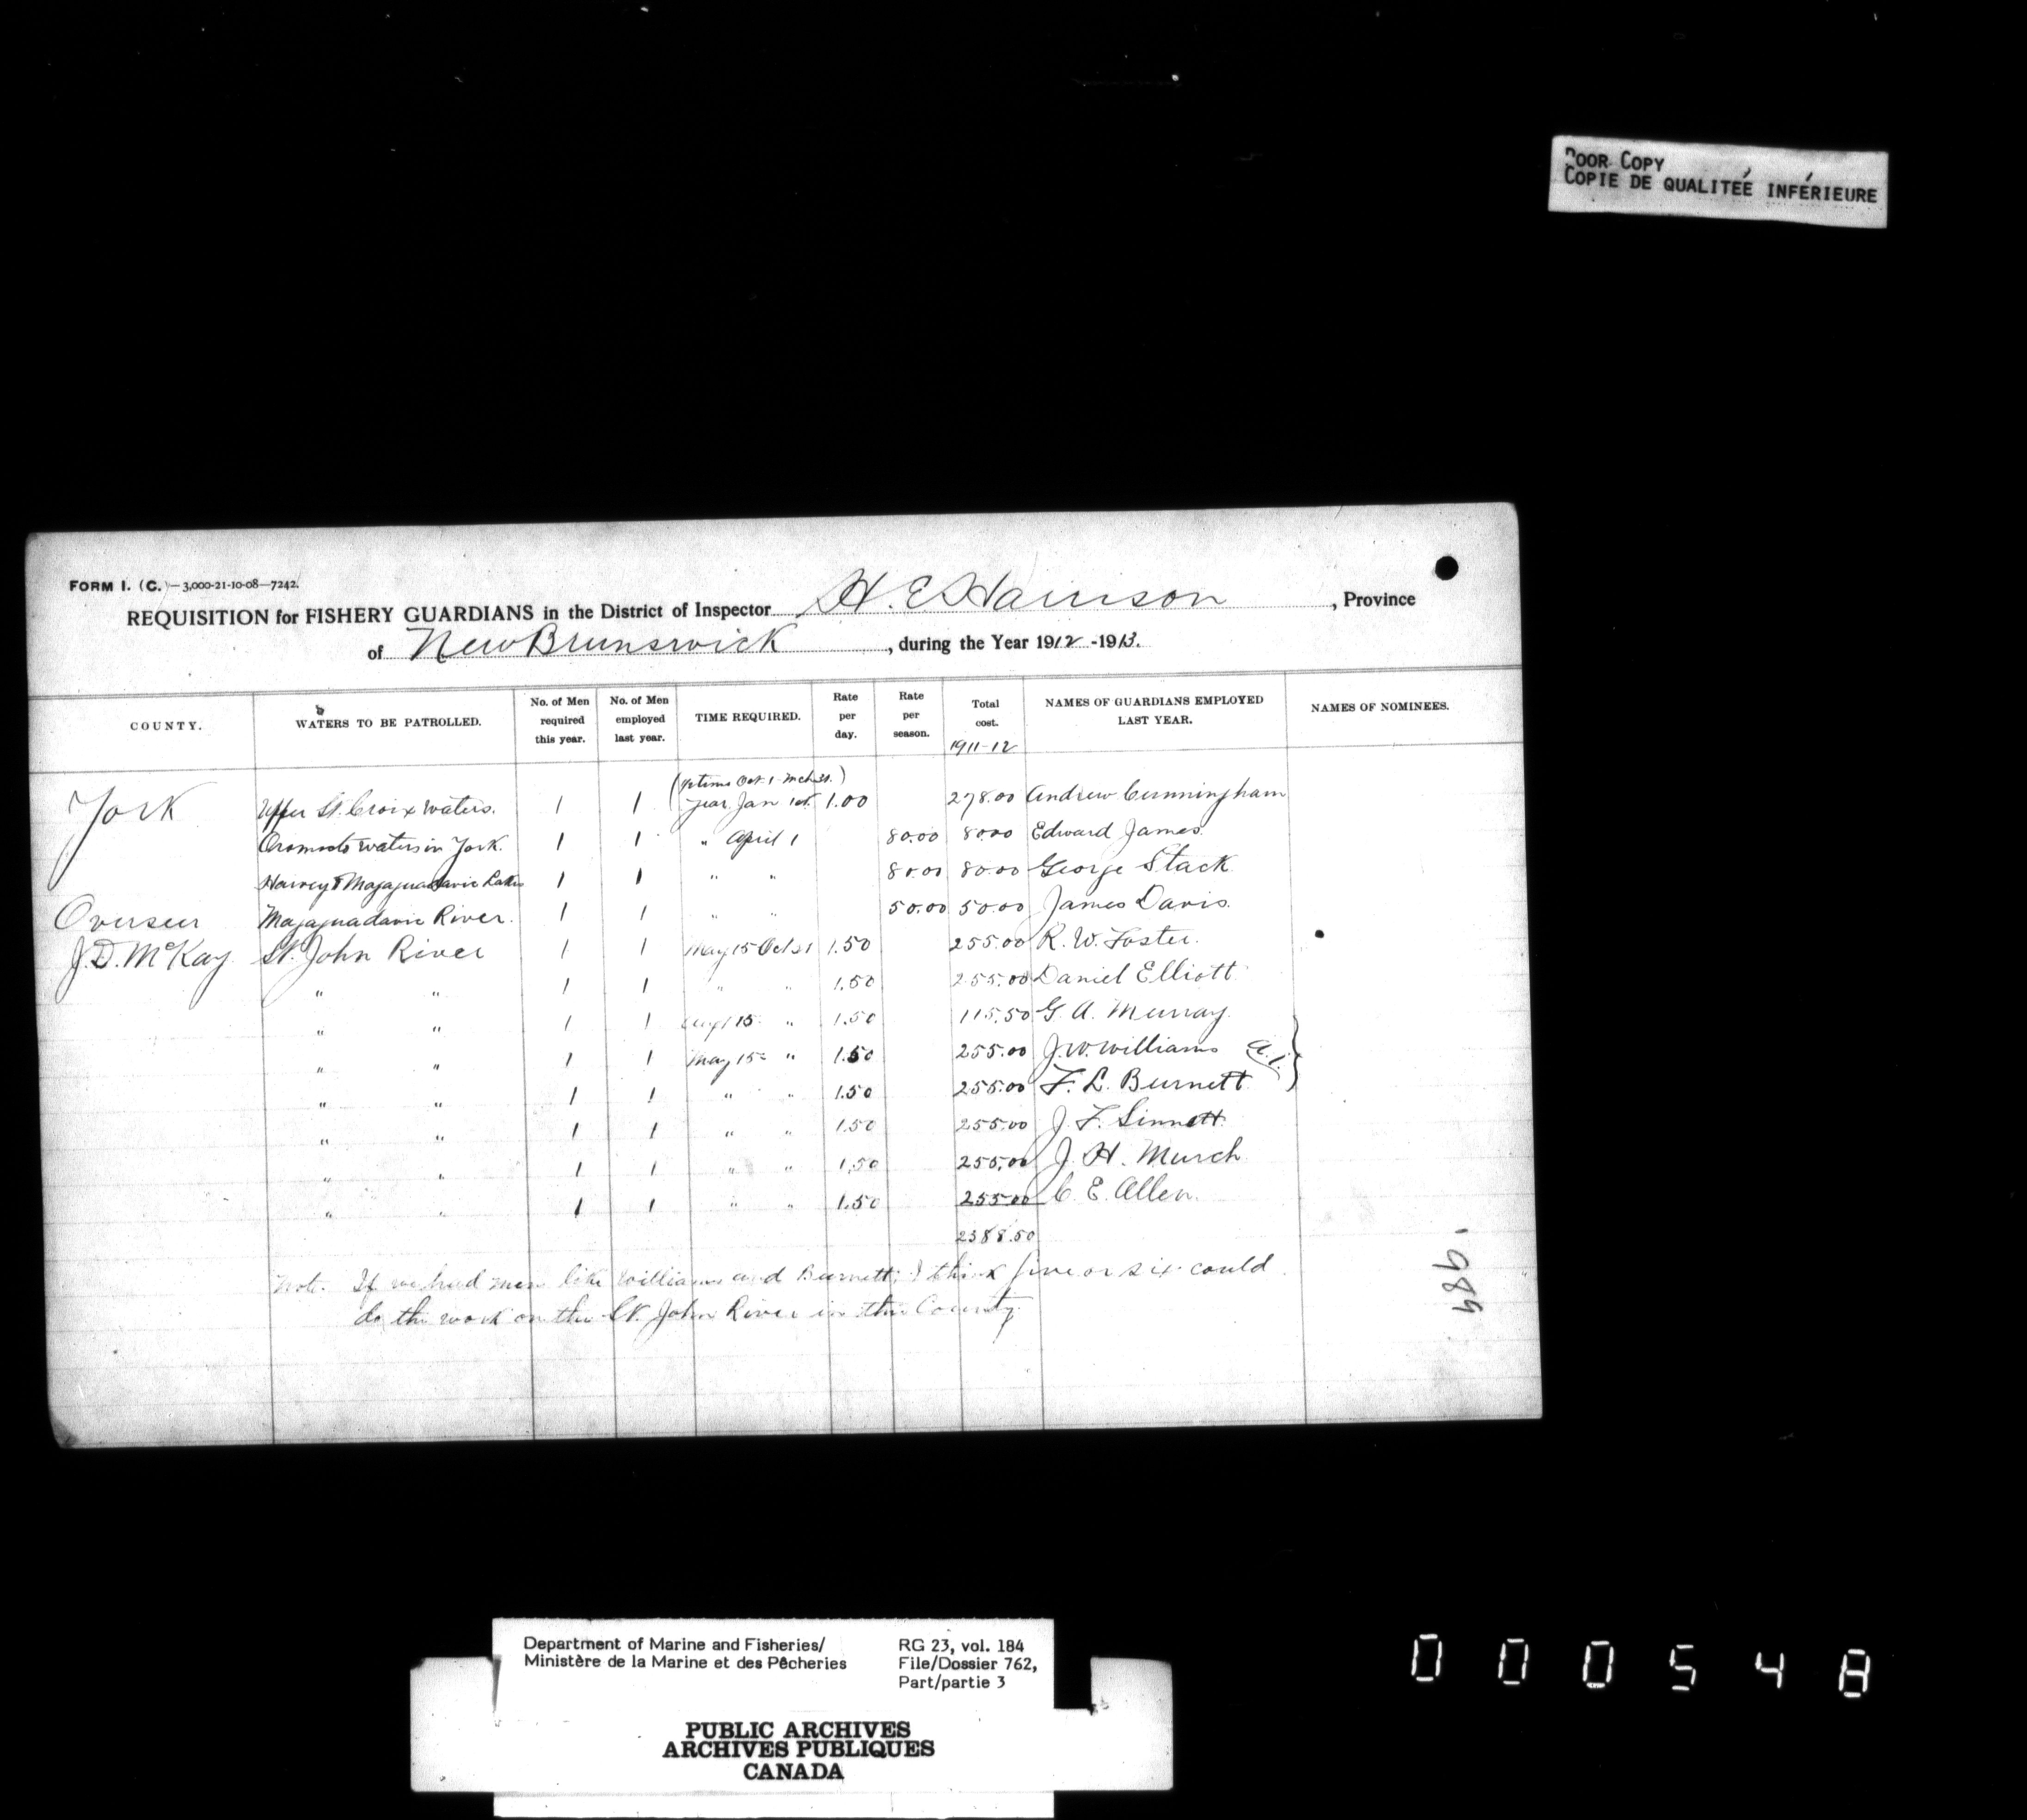 POOR COPY
COPIE DE QUALITÉE INFÉRIEURE
FORM I. (C.)—3,000-21-10-08—7242.
REQUISITION for FISHERY GUARDIANS in the District of Inspector H. E Harrison, Province
of New Brunswick, during the Year 1912-1913.
COUNTY. WATERS TO BE PATROLLED. No. of Men required this year. No. of Men employed last year. TIME REQUIRED. Rate per day. Rate per season. Total cost. 1911-12 NAMES OF GUARDIANS EMPLOYED LAST YEAR. NAMES OF NOMINEES.
(½ time Oct. 1 - Mch 31.)
York Upper St. Croix waters. 1 1 year Jan 1st 1.00 278.00 Andrew Cunningham
Oromocto waters in York. 1 1 " April 1 80.00 80.00 Edward James.
Harvey & Magaguadavic Lakes 1 1 " " 80.00 80.00 George Stack
Overseer Magaguadavic River. 1 1 " " 50.00 50.00 James Davis.
J. D. McKay. St. John River 1 1 May 15 Oct 31 1.50 255.00 R. W. Foster.
" " 1 1 " " 1.50 255.00 Daniel Elliott.
" " 1 1 Aug 15 " 1.50 115.50 G. A. Murray.
" " 1 1 May 15 " 1.50 255.00 J. W. Williams A.1. }
" " 1 1 " " 1.50 255.00 F. L. Burnett
" " 1 1 " " 1.50 255.00 J. F. Sinnett.
" " 1 1 " " 1.50 255.00 J. H. Murch
" " 1 1 " " 1.50 255.00 C. E. Allen.
2388.50
Note. If we had men like Williams and Burnett, I think five or six could
do the work on the St. John River in this County.
989
Department of Marine and Fisheries/
Ministère de la Marine et des Pêcheries
RG 23, vol. 184
File/Dossier 762,
Part/partie 3
PUBLIC ARCHIVES
ARCHIVES PUBLIQUES
CANADA
000548